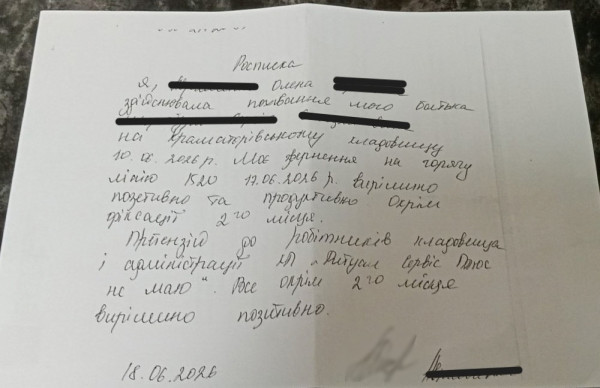 Росписка
Я, Олена
здійснювала поховання мого батька
на Краматорівському кладовищу
10.06.2026 р. Моє звернення на горячу
лінію 1520 17.06.2026 р. вирішино
позетивно та продуктивно окрім
фіксації 2го місця.
Притензій до робітників кладовища
і адміністрації „Ритуал Сервіс Плюс
не маю". Все окрім 2го місця
вирішино позитивно.
18.06.2026